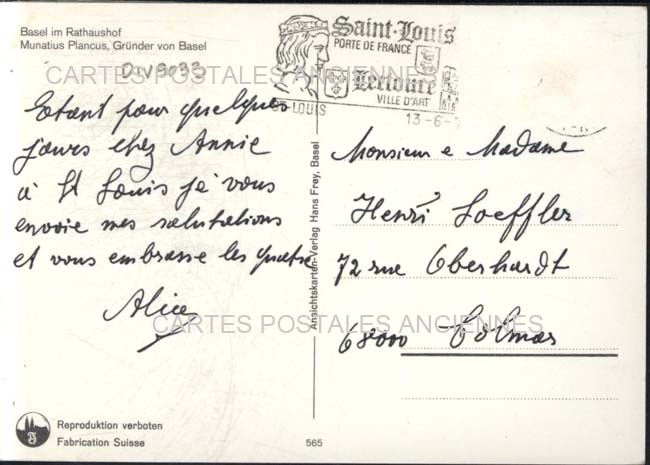 Basel im Rathaushof
Munatius Plancus, Gründer von Basel
Saint-Louis
PORTE DE FRANCE
Lectoure
VILLE D'ART
ST-LOUIS
13-6-
CARTES POSTALES ANCIENNES
Etant pour quelques
jours chez Annie
à St Louis je vous
envoie mes salutations
et vous embrasse les quatre
Alice
Ansichtskarten-Verlag Hans Frey, Basel
Monsieur e Madame
Henri Loeffler
72 rue Oberhardt
68000 Colmar
CARTES POSTALES ANCIENNES
Reproduktion verboten
Fabrication Suisse
565